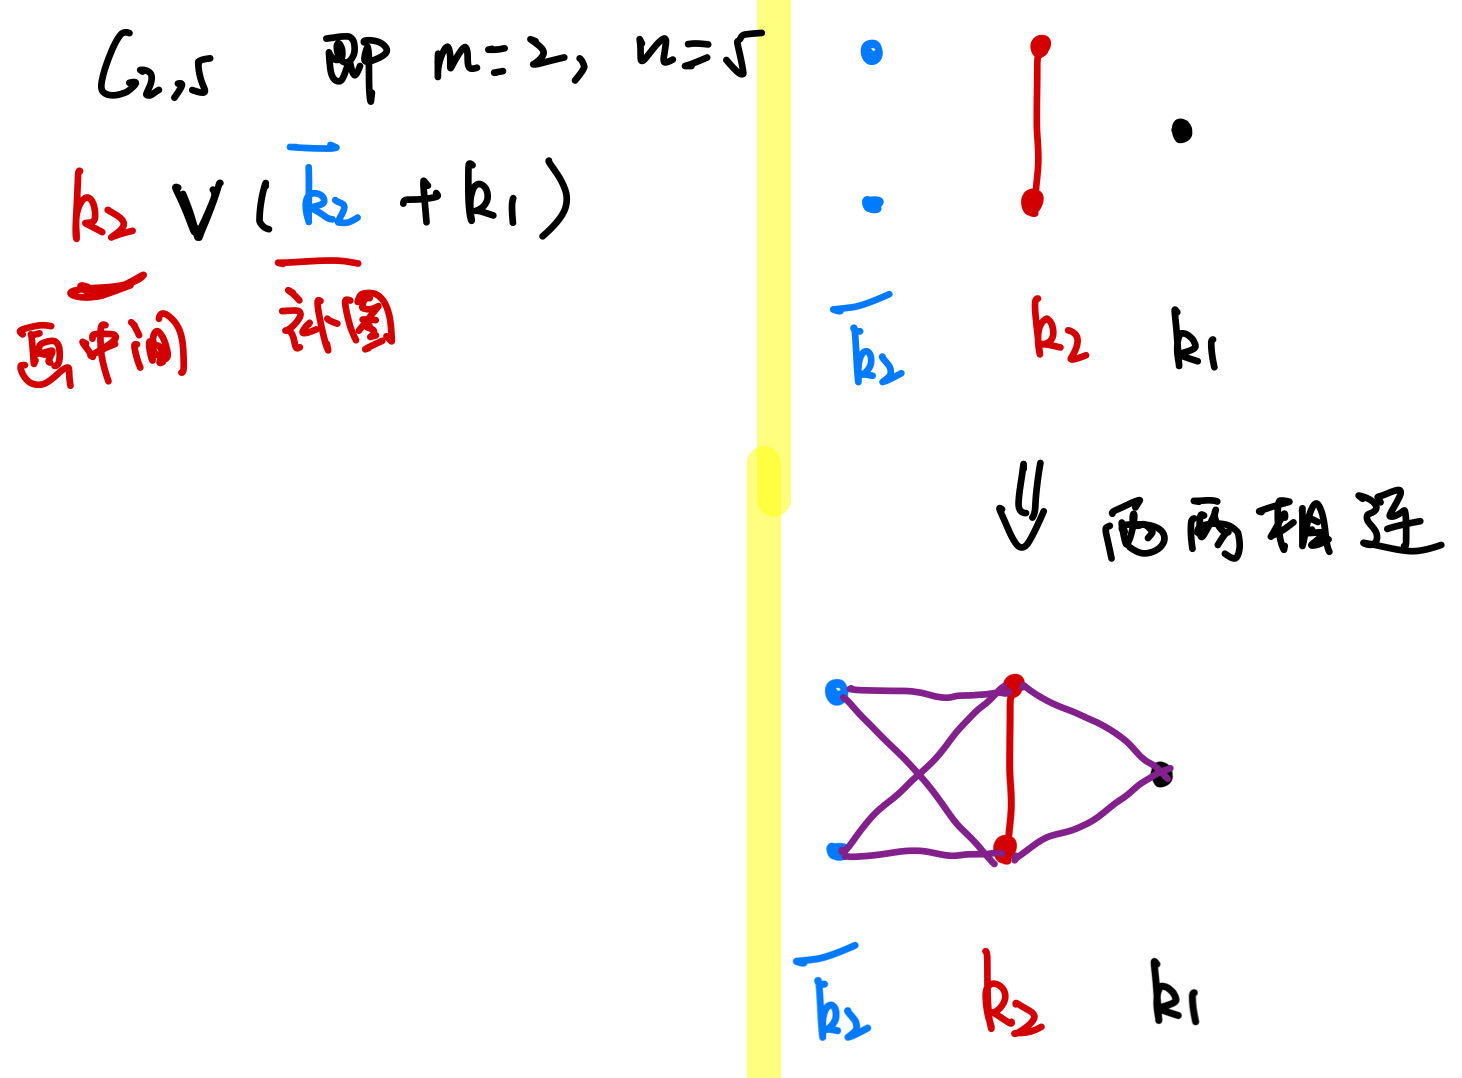 C₂,₅ 即 m=2, n=5
k₂ ∨ ( k̅₂ + k₁ )
画中间 补图
k̅₂ k₂ k₁
⇓ 两两相连
k̅₂ k₂ k₁